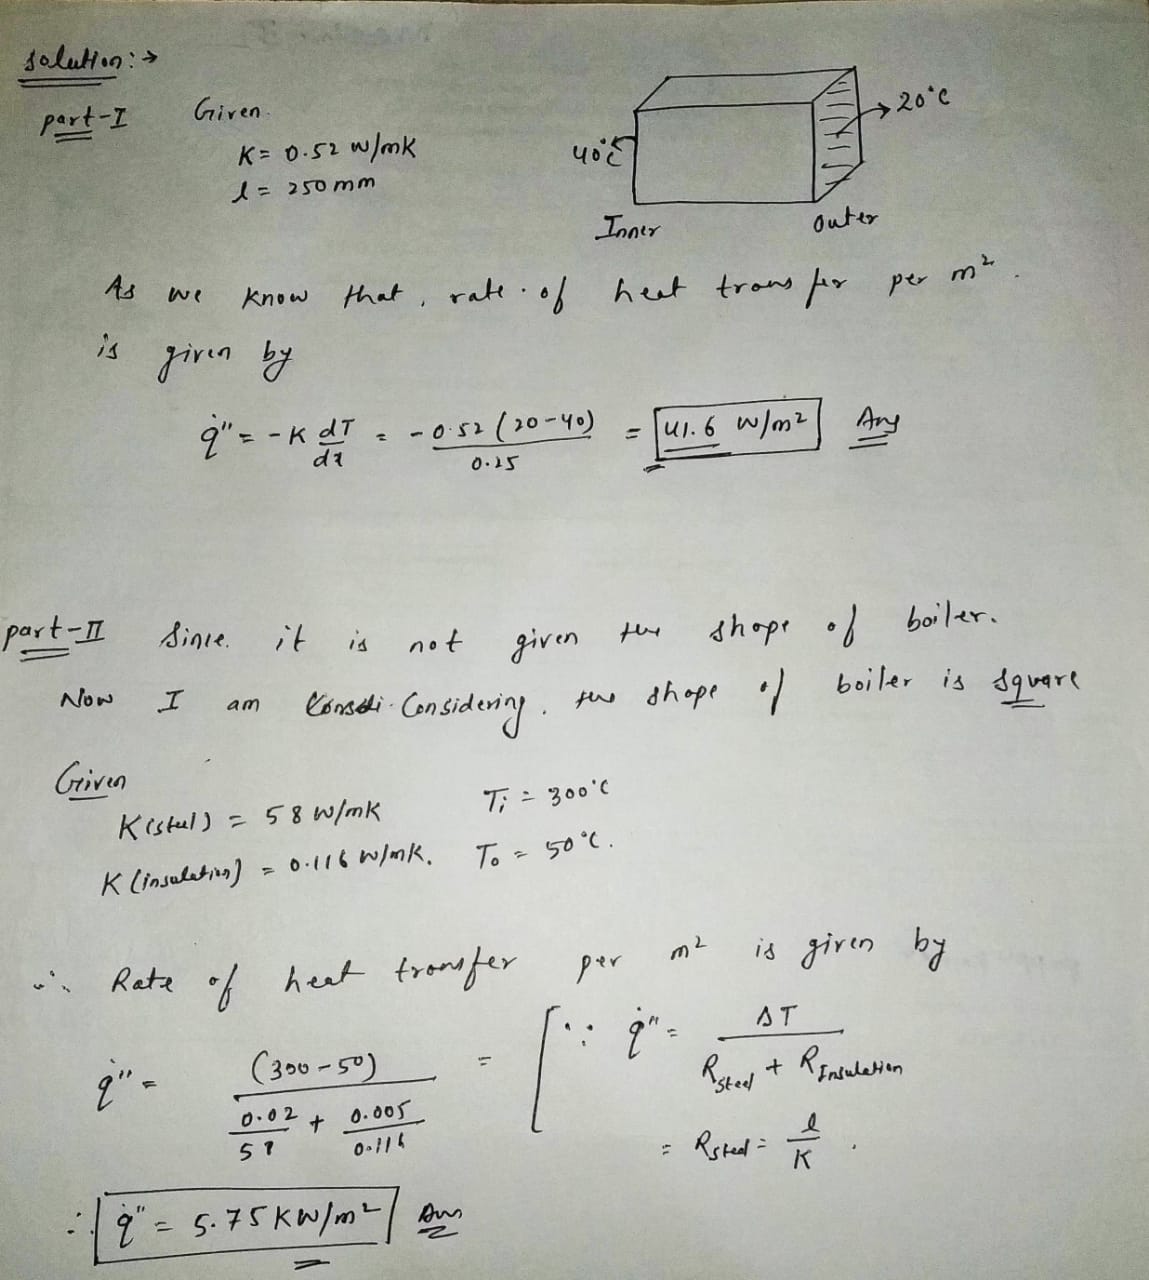 Solution :→
part-I Given.
K = 0.52 W/mK
l = 250 mm
40°C
20°C
Inner
Outer
As we know that, rate of heat transfer per m².
is given by
q̇" = -K dT/dx = -0.52 (20-40)/0.25 = 41.6 W/m² Ans
part-II Since. it is not given the shape of boiler.
Now I am Considering. the shape of boiler is square
Given
K(steel) = 58 W/mK Ti = 300°C
K (insulation) = 0.116 W/mK. To = 50°C.
∴ Rate of heat transfer per m² is given by
q̇" = (300-50) / (0.02/58 + 0.005/0.116) = [∵ q̇" = ΔT / (RSteel + RInsulation)
= Rsteel = l/K .
∴ q̇" = 5.75 KW/m² Ans